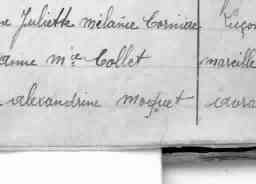 Juliette mélanie Corniau Luçon
anne mie Collet marseille
alexandrine moquet